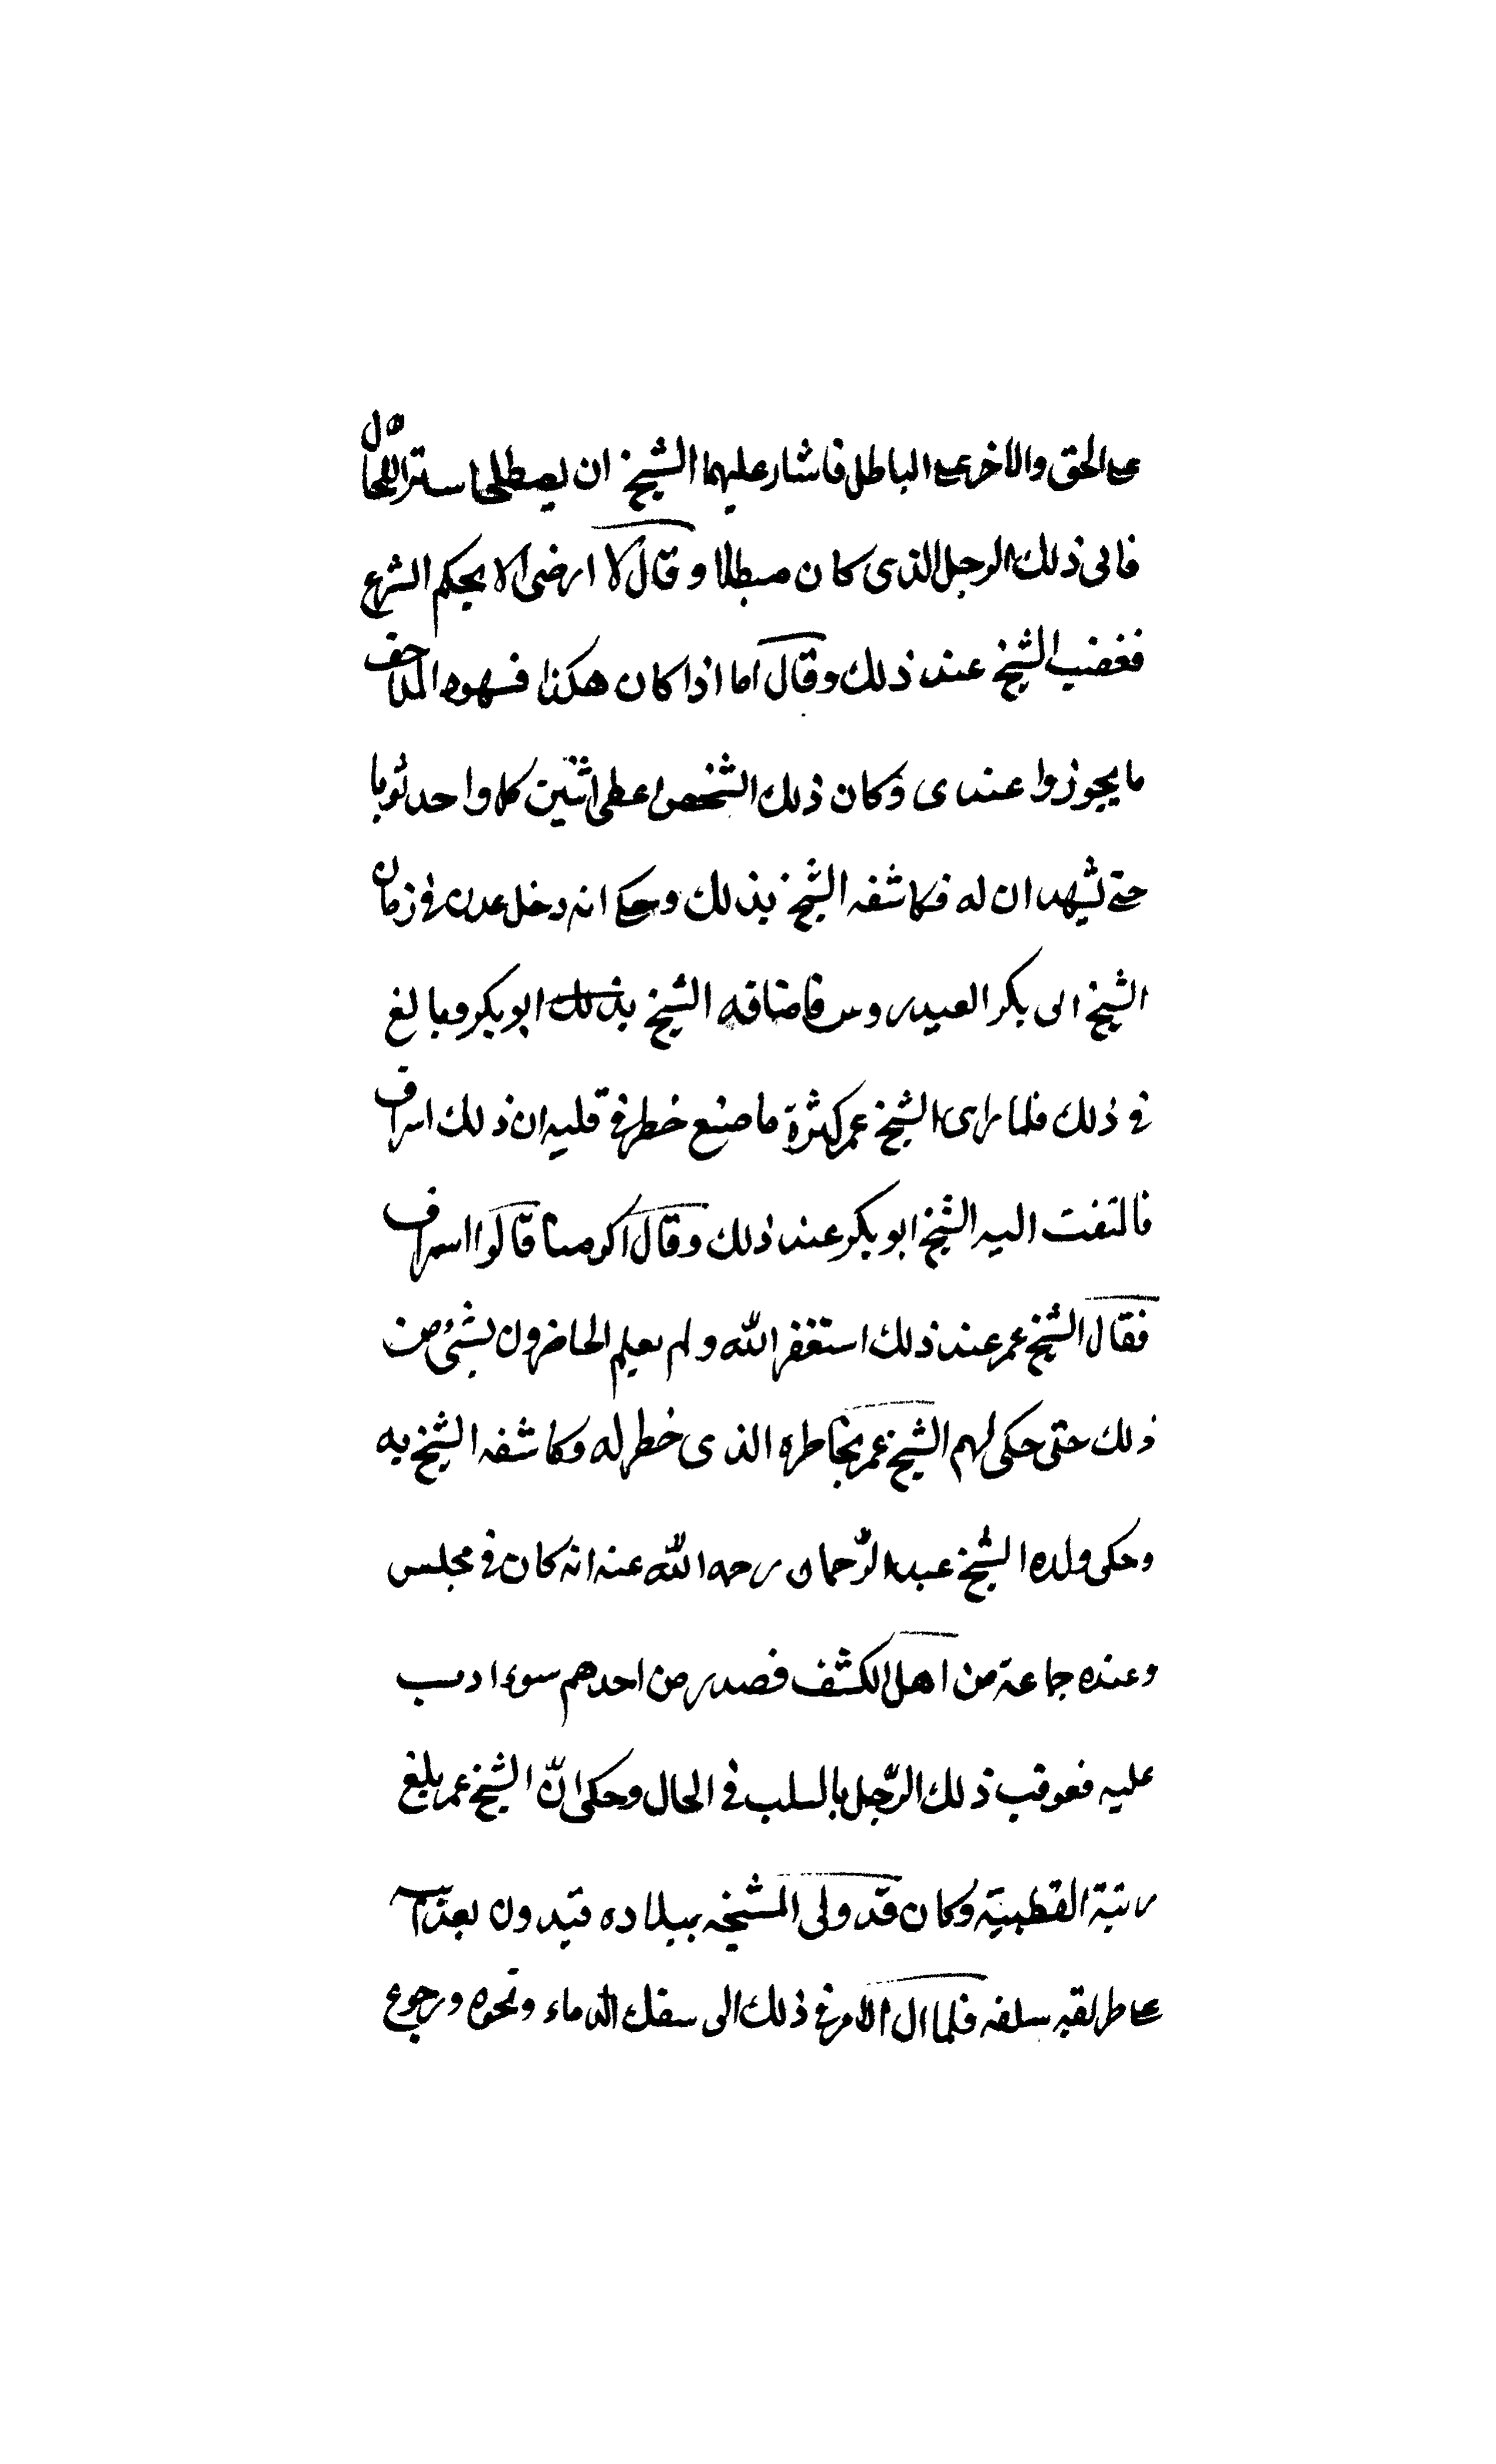 على الحق والاخر على الباطل فاشار عليهما الشيخ ان يصطلحا سترا للحال
فابى ذلك الرجل الذى كان مبطلا وقال لا ارضى الا بحكم الشرع
فغضب الشيخ عند ذلك وقال اما اذا كان هكذا فشهود الملاحف
ما يجوزوا عندى وكان ذلك الشخص اعطى اثنين كل واحد ثوبا
حتى يشهد ان له فكاشفه الشيخ بذلك وحكى انه دخل عدن فى زمان
الشيخ ابى بكر العيدروس فاضافه الشيخ بذلك ابو بكر وبالغ
فى ذلك فلما راى الشيخ عمر كثرة ما صنع خطر فى قلبه ان ذلك اسراف
فالتفت اليه الشيخ ابو بكر عند ذلك وقال اكرمنا قالوا اسراف
فقال الشيخ عمر عند ذلك استغفر الله ولم يعلم الحاضرون بشئ من
ذلك حتى حكى لهم الشيخ عمر بخاطره الذى خطر له وكاشفه الشيخ به
وحكى ولده الشيخ عبد الرّحمان رحمه الله عنه انه كان فى مجلس
وعنده جماعة من اهل الكشف فصدر من احدهم سوء ادب
عليه فعوقب ذلك الرّجل بالسلب فى الحال وحكى انّ الشيخ عمر بلغ
رتبة القطبيّة وكان قد ولى المشيخه ببلاده قيدون بعدّاب
على طريقه سلفه فلما ال الامر فى ذلك الى سفك الدماء ونحوه ورجوع